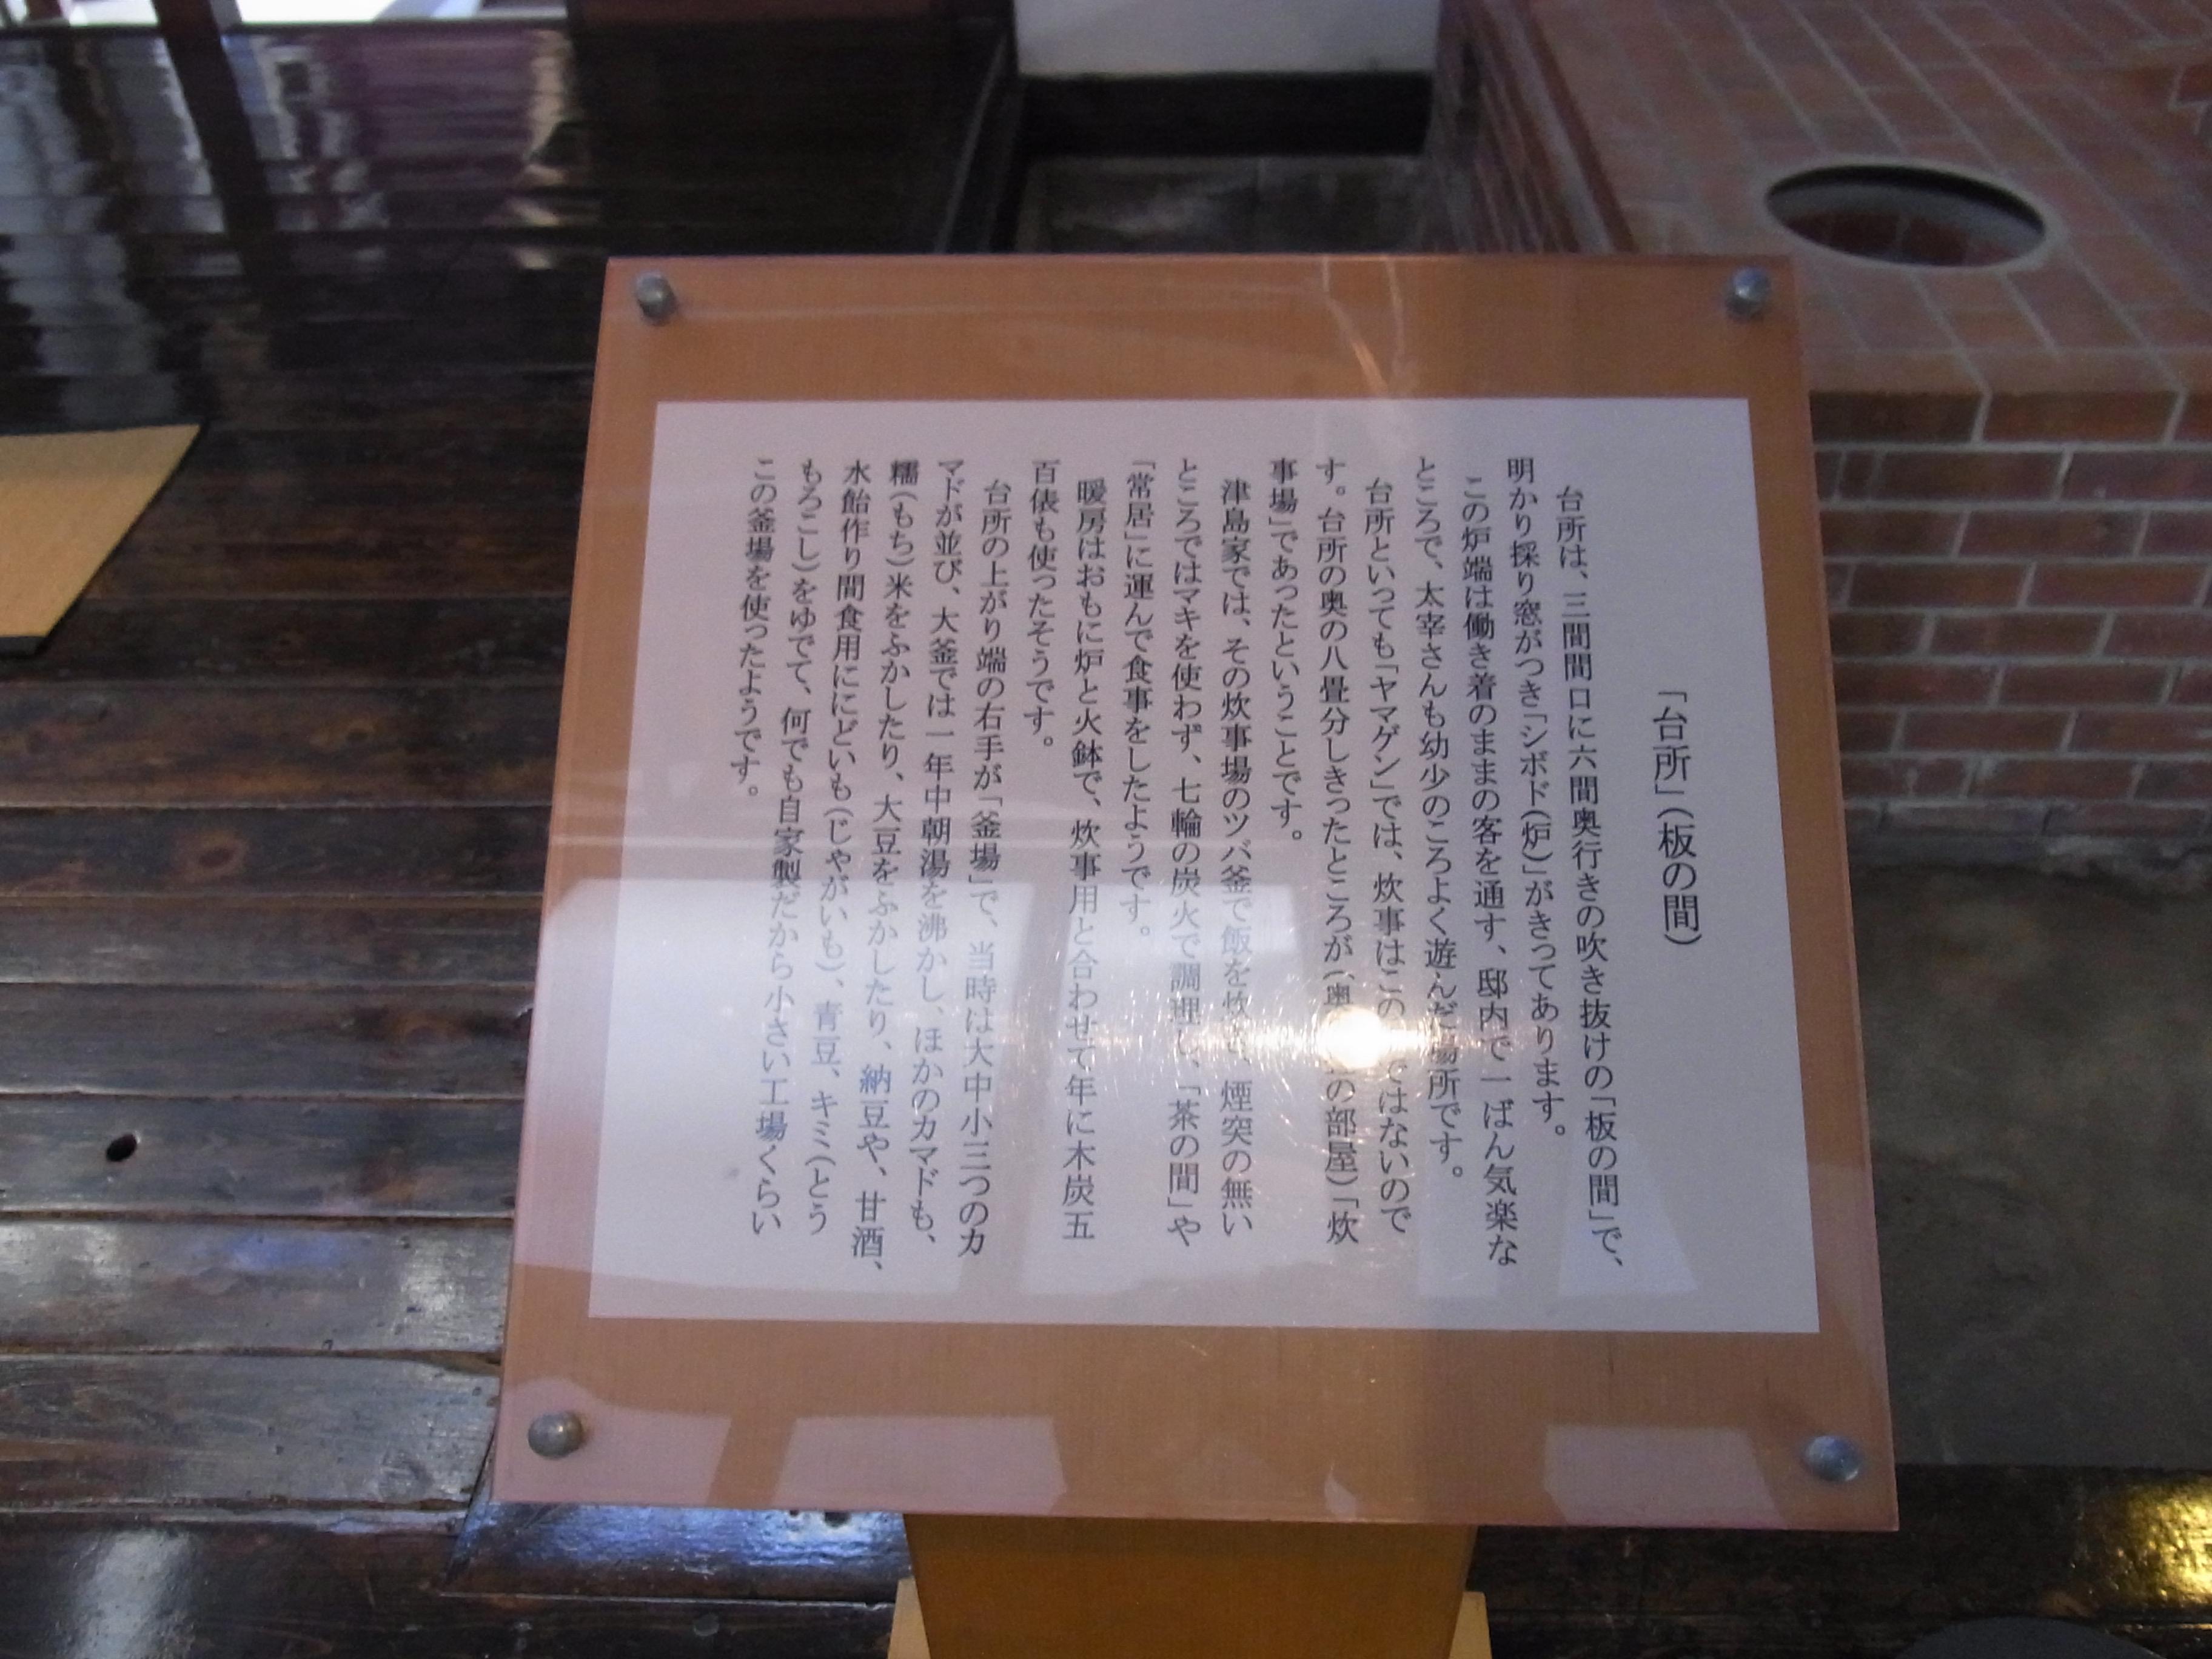 「台所」(板の間)
台所は、三間間口に六間奥行きの吹き抜けの「板の間」で、
明かり採り窓がつき「シボド(炉)」がきってあります。
この炉端は働き着のままの客を通す、邸内で一ばん気楽な
ところで、太宰さんも幼少のころよく遊んだ場所です。
台所といっても「ヤマゲン」では、炊事はこの ではないので
す。台所の奥の八畳分しきったところが(奥 の部屋)「炊
事場」であったということです。
津島家では、その炊事場のツバ釜で飯を炊き、煙突の無い
ところではマキを使わず、七輪の炭火で調理し、「茶の間」や
「常居」に運んで食事をしたようです。
暖房はおもに炉と火鉢で、炊事用と合わせて年に木炭五
百俵も使ったそうです。
台所の上がり端の右手が「釜場」で、当時は大中小三つのカ
マドが並び、大釜では一年中朝湯を沸かし、ほかのカマドも、
糯(もち)米をふかしたり、大豆をふかしたり、納豆や、甘酒、
水飴作り間食用ににどいも(じゃがいも)、青豆、キミ(とう
もろこし)をゆでて、何でも自家製だから小さい工場くらい
この釜場を使ったようです。